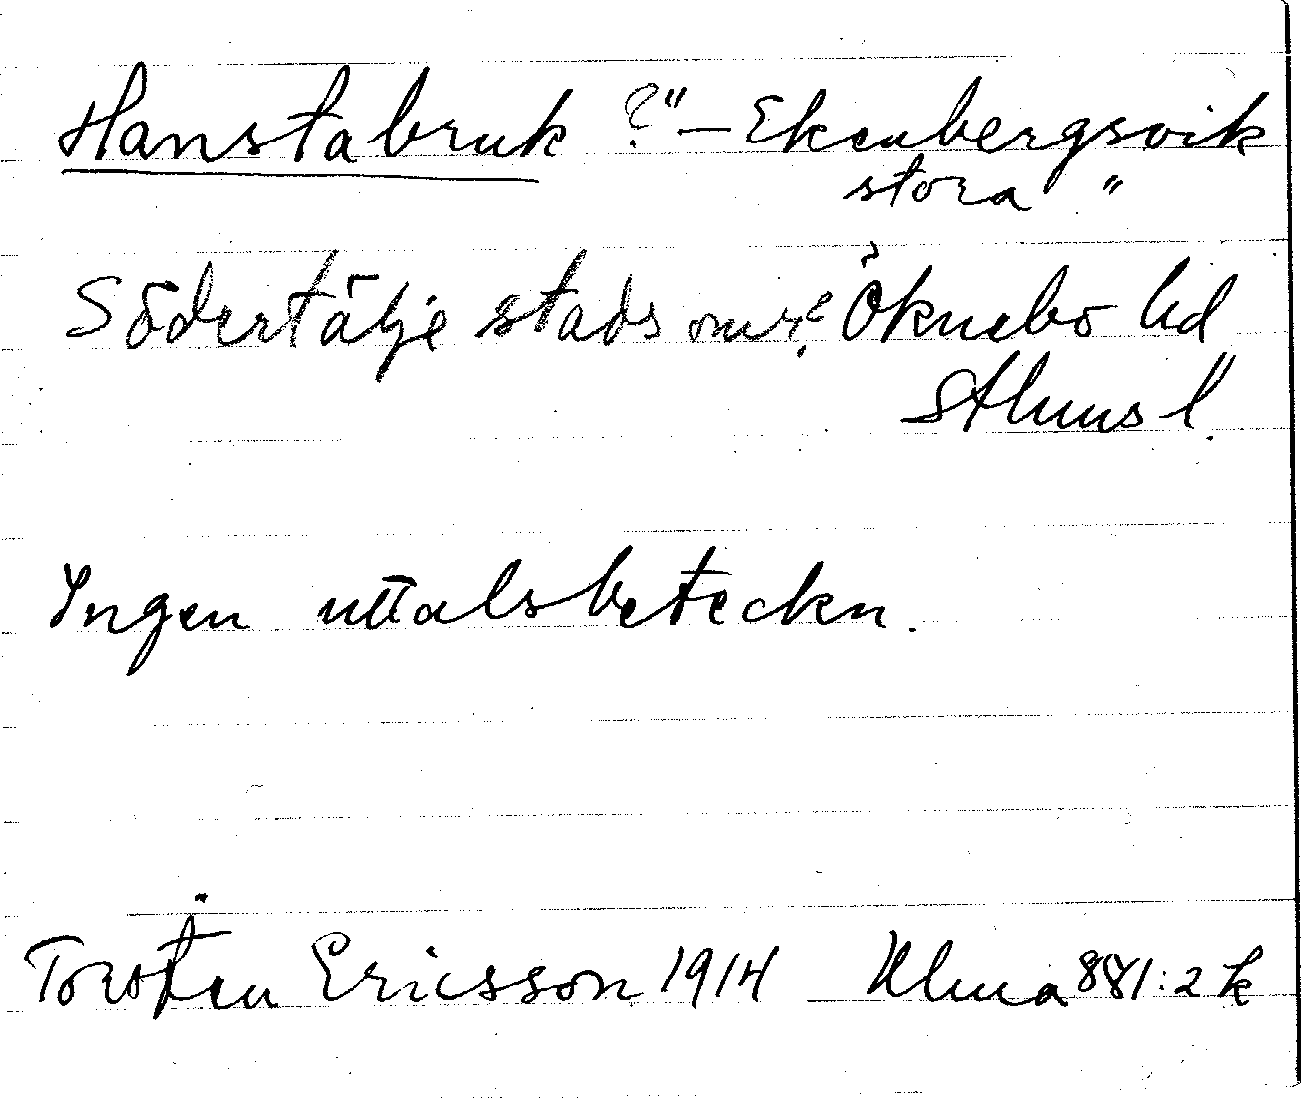 Hanstabruk ?" – Ekenbergsvik
stora "
Södertälje stads omr. Öknebo hd
Sthms l.
Ingen uttalsbeteckn.
Torsten Ericsson 1914 Ulma 881:2 k